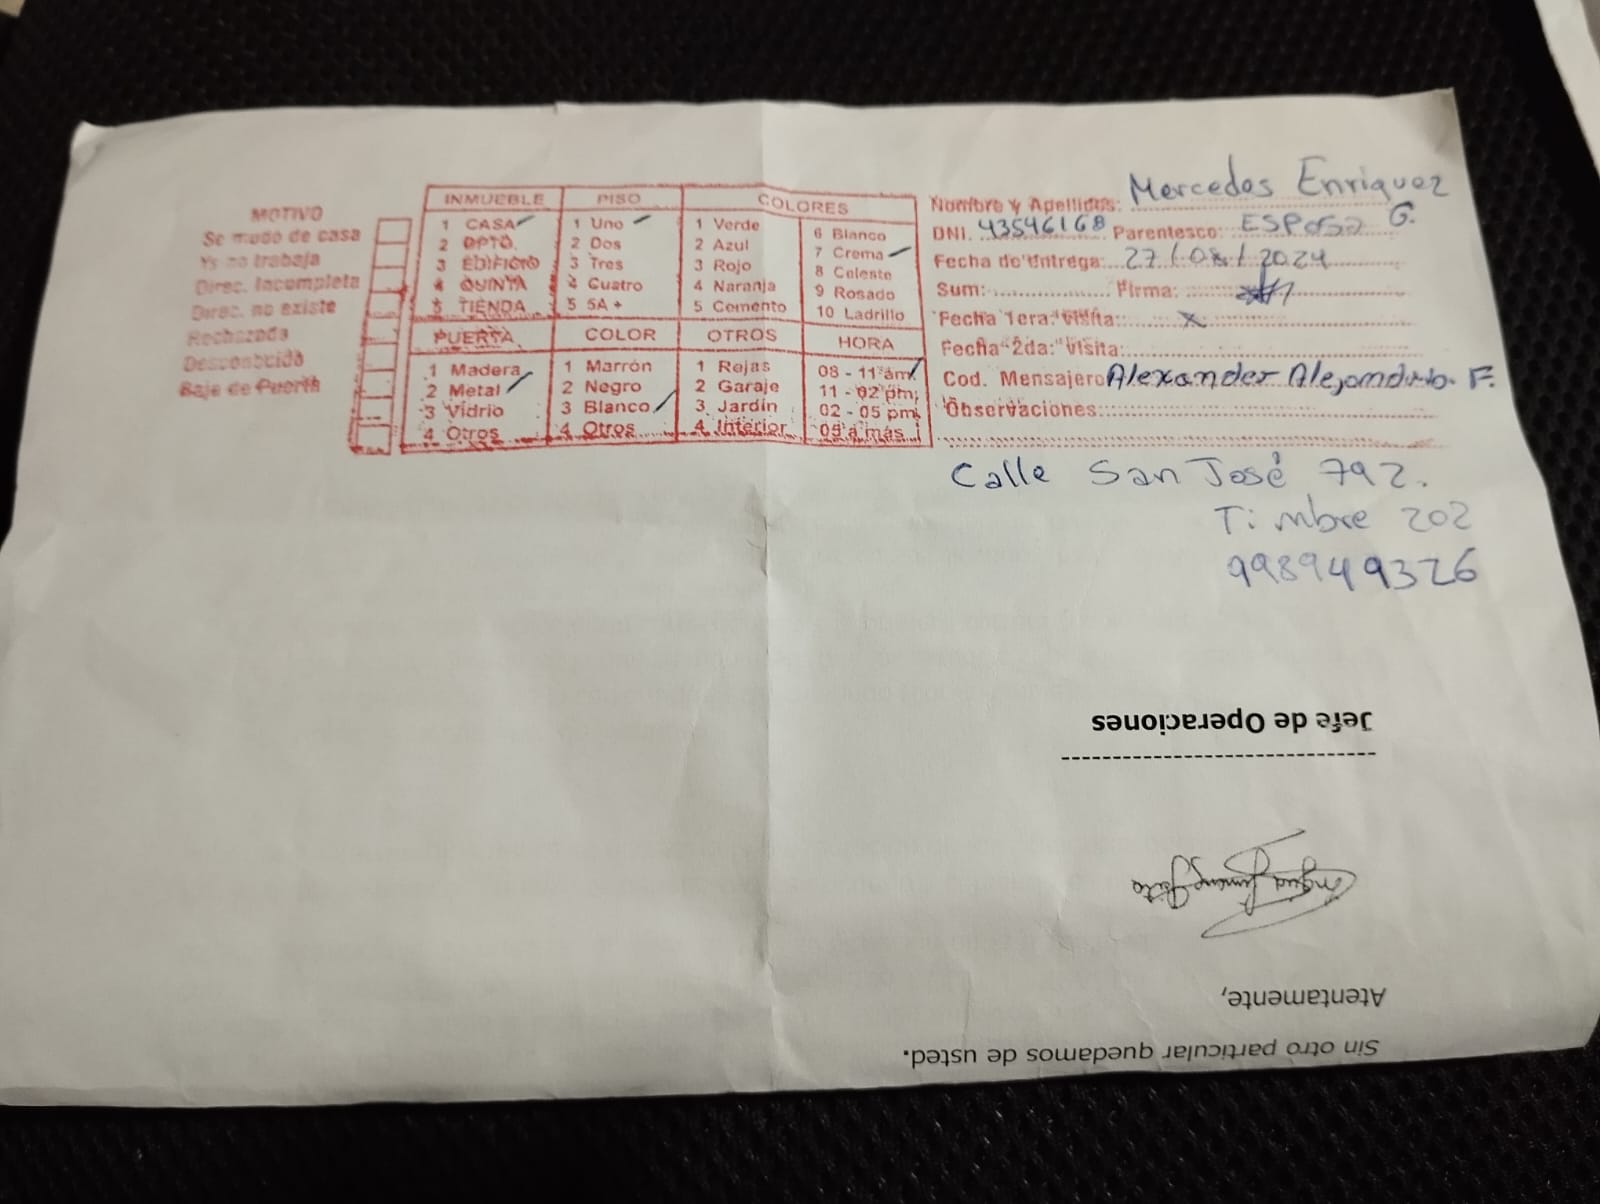 MOTIVO
Se mudo de casa
Ya no trabaja
Direc. Incompleta
Direc. no existe
Rechazado
Desconocido
Bajo de Puerta
INMUEBLE
1 CASA
2 DPTO.
3 EDIFICIO
4 QUINTA
5 TIENDA
PISO
1 Uno
2 Dos
3 Tres
4 Cuatro
5 5A +
COLORES
1 Verde
2 Azul
3 Rojo
4 Naranja
5 Cemento
6 Blanco
7 Crema
8 Celeste
9 Rosado
10 Ladrillo
PUERTA
1 Madera
2 Metal
3 Vidrio
4 Otros
COLOR
1 Marrón
2 Negro
3 Blanco
4 Otros
OTROS
1 Rejas
2 Garaje
3 Jardín
4 Interior
HORA
08 - 11 am
11 - 02 pm
02 - 05 pm
05 a más
Nombre y Apellidos: Mercedes Enriquez G.
DNI. 43546168 Parentesco: ESPOSA
Fecha de Entrega: 27/08/2024
Sum: Firma:
Fecha 1era. Visita: x
Fecha 2da: Visita:
Cod. Mensajero Alexander Alejandro. F.
Observaciones:
Calle San José 792.
Timbre 202
998949326
Jefe de Operaciones
Atentamente,
Sin otro particular quedamos de usted.